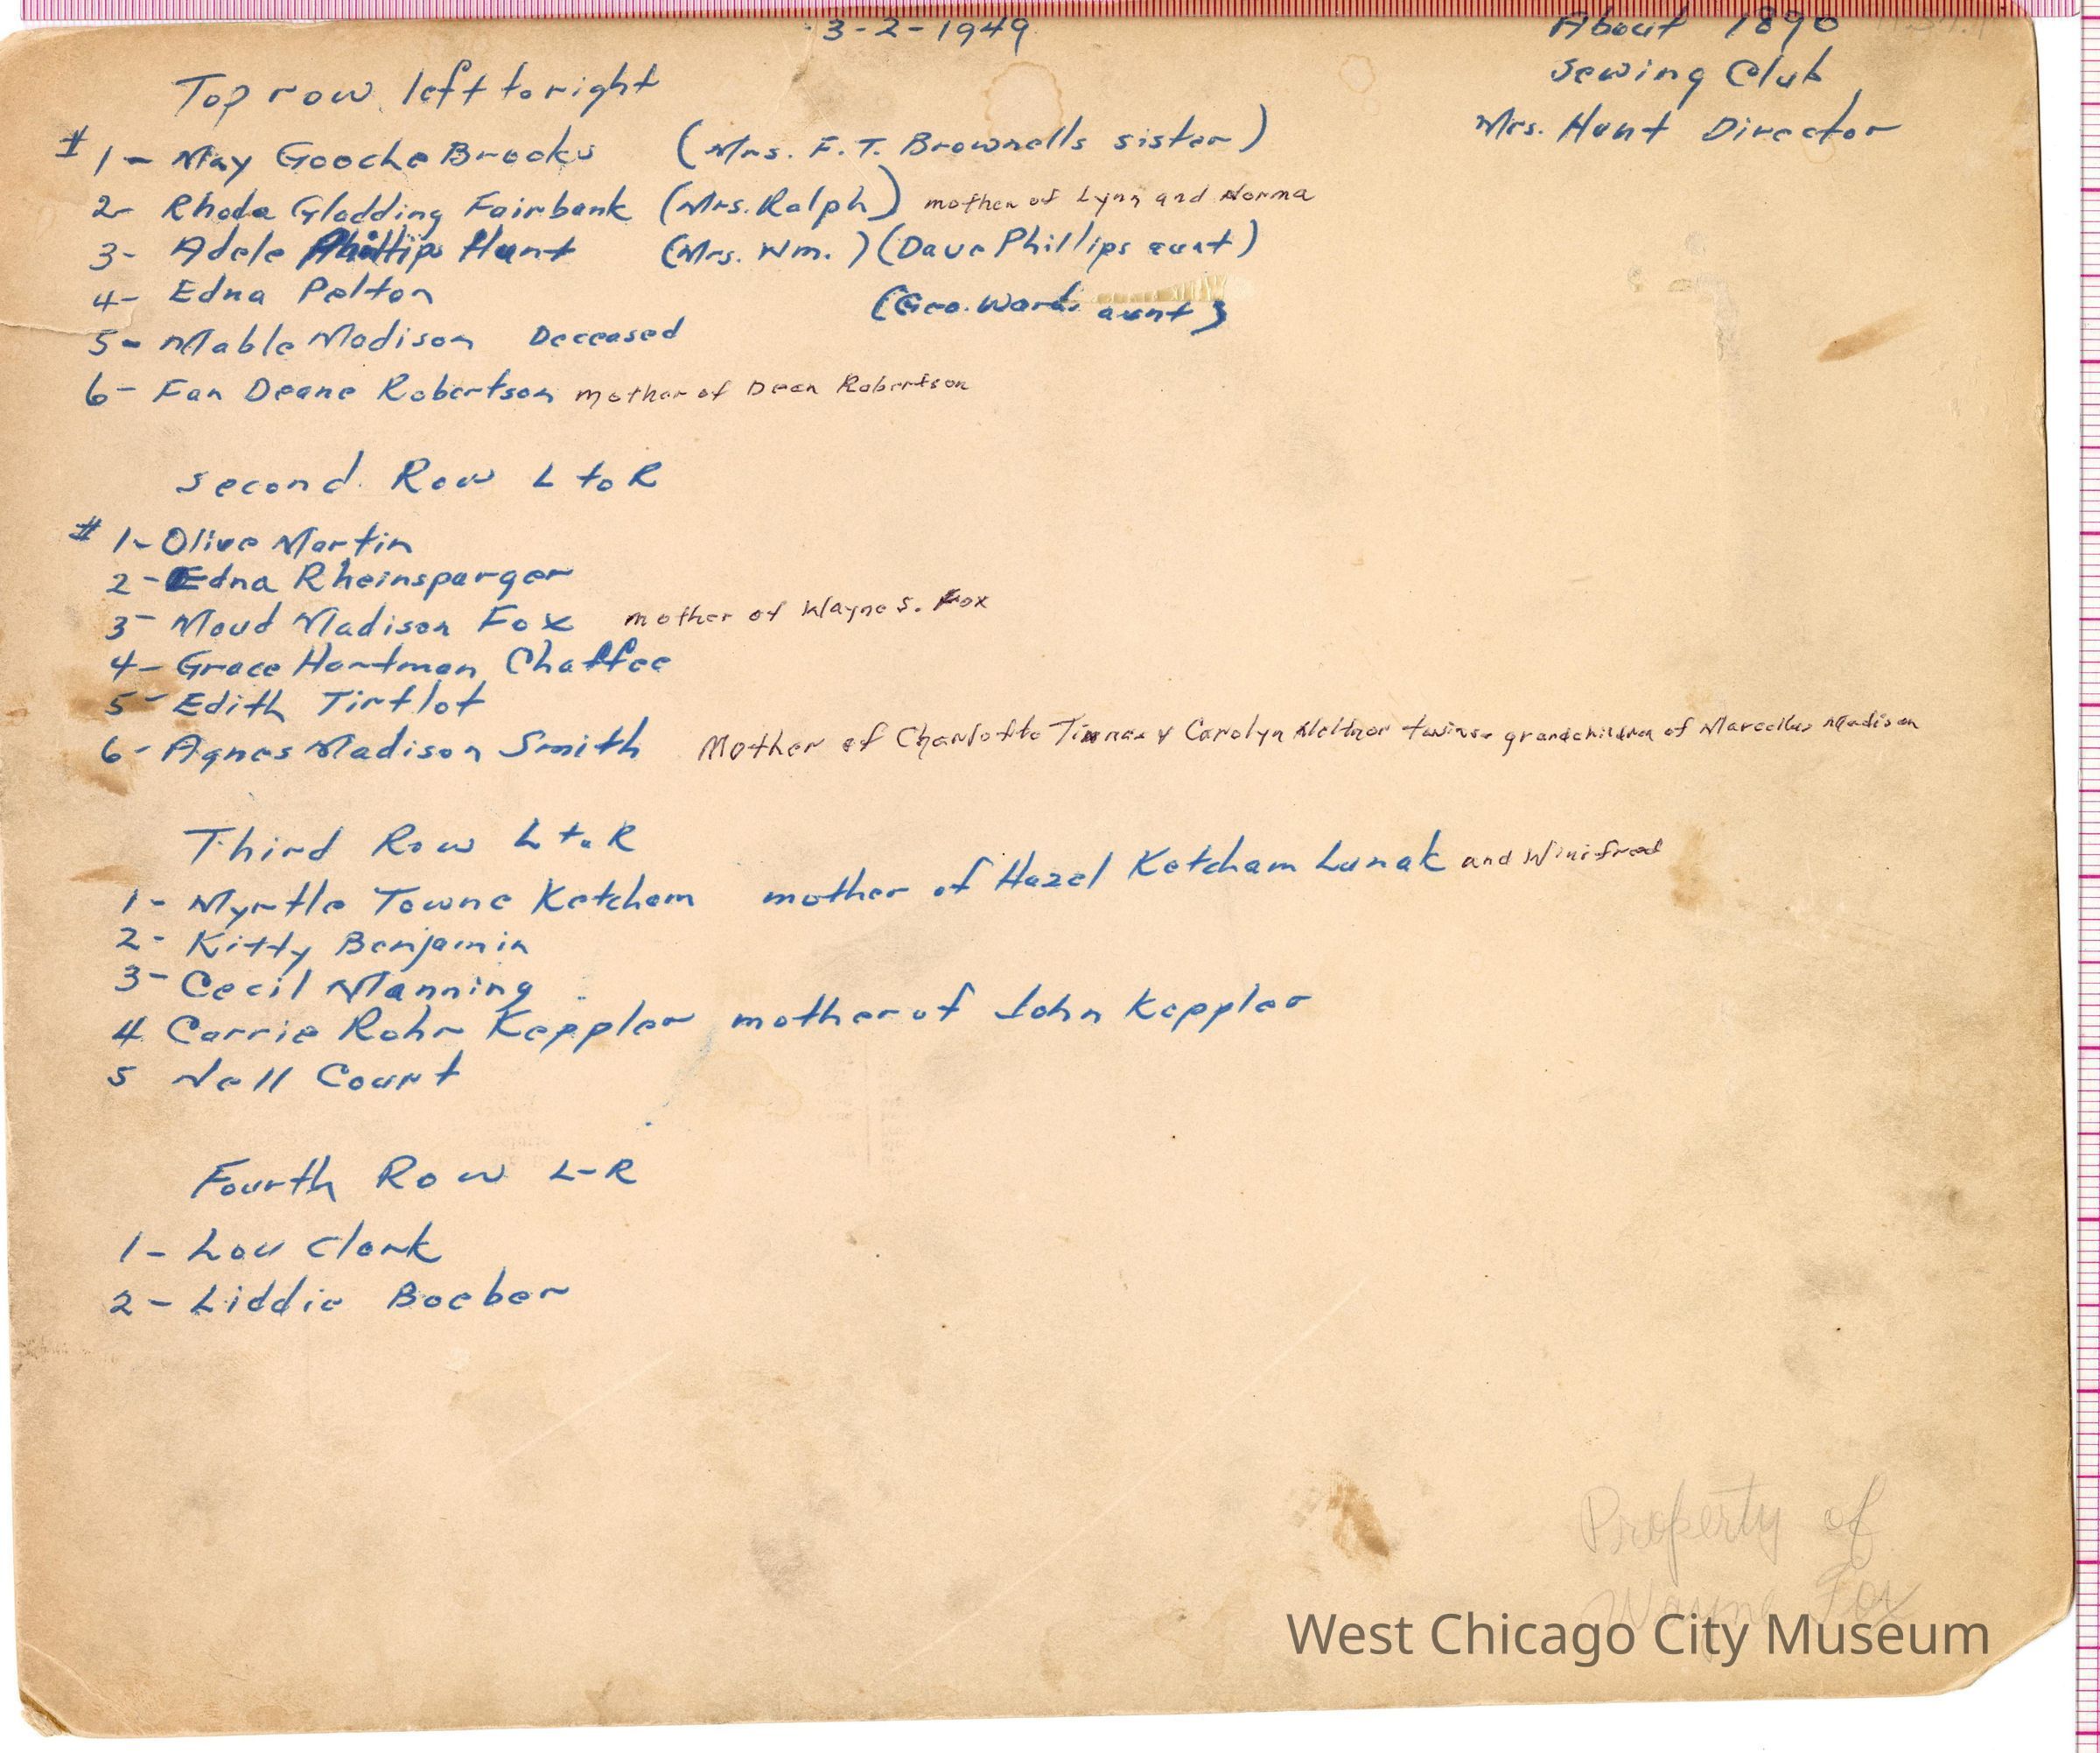 3-2-1949
About 1890
Sewing Club
Mrs. Hunt Director
Top row left to right
# 1- May Gooche Brooks (Mrs. F. T. Brownells sister)
2- Rhoda Gladding Fairbank (Mrs. Ralph) mother of Lynn and Norma
3- Adele Phillips Hunt (Mrs. Wm.) (Dave Phillips aunt)
4- Edna Pelton (Geo. Wards aunt)
5- Mable Madison Deceased
6- Fan Deane Robertson mother of Dean Robertson
Second Row L to R
# 1- Olive Martin
2- Edna Rheinsparger
3- Maud Madison Fox mother of Wayne S. Fox
4- Grace Hartman Chaffee
5- Edith Tirtlot
6- Agnes Madison Smith Mother of Charlotte & Carolyn twins- grandchildren of Marcellus Madison
Third Row L to R
1- Myrtle Towne Ketcham mother of Hazel Ketcham Lunak and Winifred
2- Kitty Benjamin
3- Cecil Manning
4 Carrie Rohr Keppler mother of John Keppler
5 Nell Court
Fourth Row L-R
1- Lou Clark
2- Liddie Boeber
Property of
Wayne Fox
West Chicago City Museum